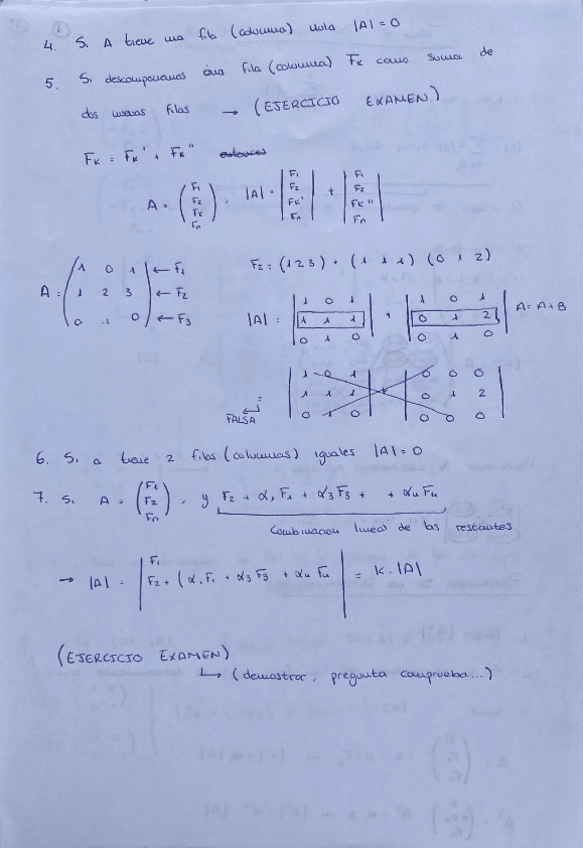 4. Si A tiene una fila (columna) nula |A| = 0
5. Si descomponemos una fila (columna) Fk como suma de
dos nuevas filas → (EJERCICIO EXAMEN)
Fk = Fk' + Fk'' entonces
A = (F1 F2 Fk Fn), |A| = |F1 F2 Fk' Fn| + |F1 F2 Fk'' Fn|
A = (1 0 1 ← F1
1 2 3 ← F2
0 1 0) ← F3
F2 = (1 2 3) = (1 1 1) (0 1 2)
|A| = |1 0 1 | 1 1 1 | 0 1 0| + |1 0 1 | 0 1 2 | 0 1 0| A = A + B
= |1 0 1 | 1 1 1 | 0 1 0| + |0 0 0 | 0 1 2 | 0 0 0|
FALSA
6. Si a tiene 2 filas (columnas) iguales |A| = 0
7. Si A = (F1 F2 Fn), y F2 + α1 F1 + α3 F3 + + αn Fn
Combinacion lineal de las restantes
→ |A| = |F1 F2 + (α1 F1 + α3 F3 + αn Fn| = K · |A|
(EJERCICIO EXAMEN)
↳ (demostrar, pregunta comprueba...)